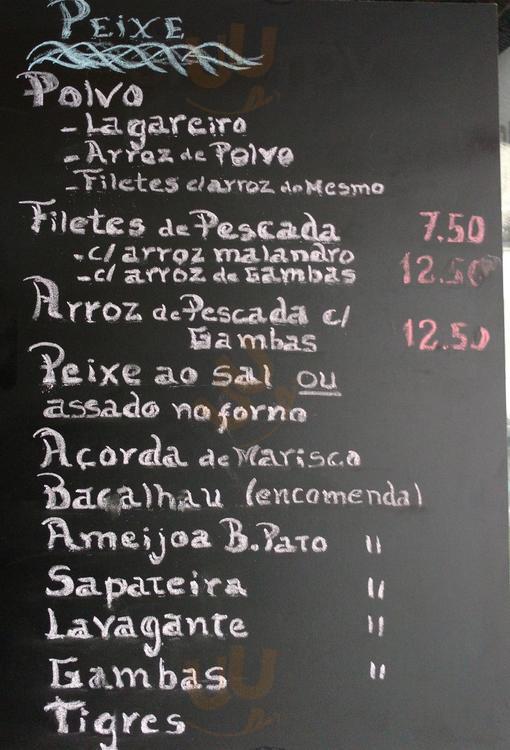 Peixe
Polvo
- Lagareiro
- Arroz de Polvo
- Filetes c/arroz do Mesmo
Filetes de Pescada 7.50
- c/ arroz malandro
- c/ arroz de Gambas 12.50
Arroz de Pescada c/
Gambas 12.50
Peixe ao sal ou
assado no forno
Açorda de Marisco
Bacalhau (encomenda)
Ameijoa B. Pato "
Sapateira "
Lavagante "
Gambas "
Tigres